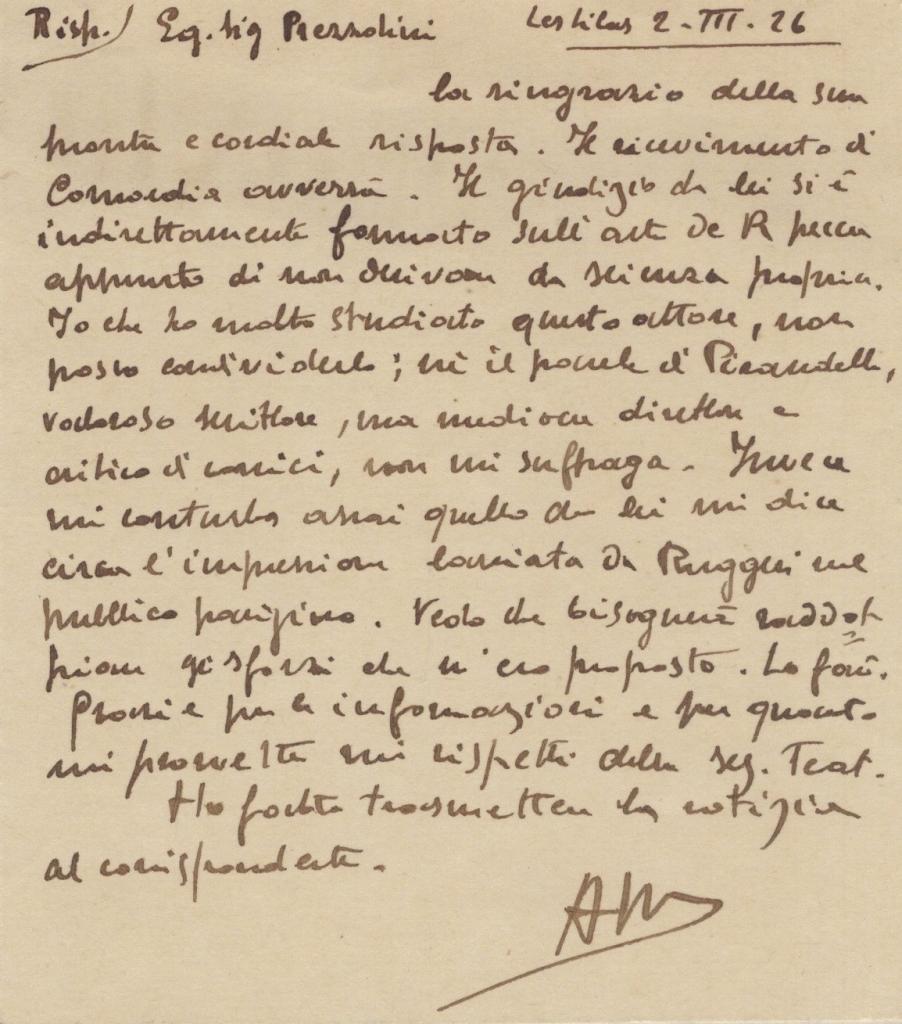 Risp./ Eg. Sig Prezzolini Les Lilas 2-III.26
La ringrazio della sua
pronta e cordiale risposta. Il ricevimento di
Comoedia avverrà. Il giudizio da lei si è
indirettamente formato sull'arte de R pecca
appunto di non derivare da scienza propria.
Io che ho molto studiato questo attore, non
posso condividerlo; nè il parere di Pirandello,
valoroso scrittore, ma mediocre direttore e
critico di comici, non mi suffraga. Invece
mi conturba assai quello che lei mi dice
circa l'impressione lasciata da Ruggeri nel
pubblico parigino. Vedo che bisognerà raddop
piare gi sforzi che m'ero proposto. Lo farò.
Grazie per le informazioni e per quanto
mi promette nei rispetti della sez. Teat.
Ho fatto trasmettere la notizia
al corrispondente.